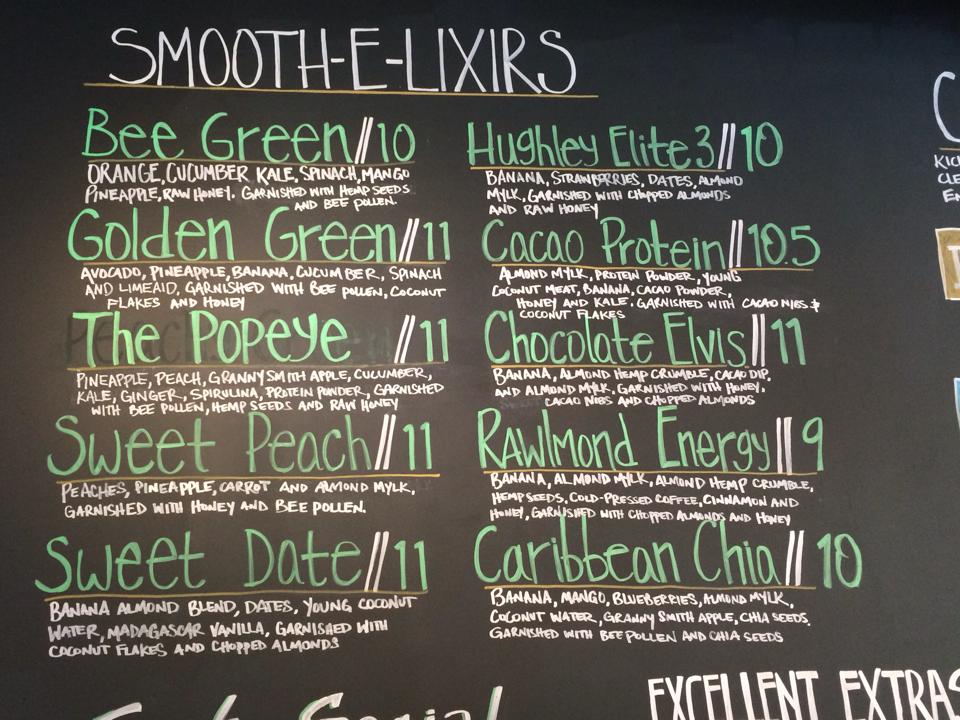 SMOOTH-E-LIXIRS
Bee Green//10
ORANGE, CUCUMBER KALE, SPINACH, MANGO
PINEAPPLE, RAW HONEY. GARNISHED WITH HEMP SEEDS
AND BEE POLLEN.
Golden Green//11
AVOCADO, PINEAPPLE, BANANA, CUCUMBER, SPINACH
AND LIMEAID, GARNISHED WITH BEE POLLEN, COCONUT
FLAKES AND HONEY
The Popeye //11
PINEAPPLE, PEACH, GRANNY SMITH APPLE, CUCUMBER,
KALE, GINGER, SPIRULINA, PROTEIN POWDER, GARNISHED
WITH BEE POLLEN, HEMP SEEDS AND RAW HONEY
Sweet Peach//11
PEACHES, PINEAPPLE, CARROT AND ALMOND MYLK,
GARNISHED WITH HONEY AND BEE POLLEN.
Sweet Date//11
BANANA ALMOND BLEND, DATES, YOUNG COCONUT
WATER, MADAGASCAR VANILLA, GARNISHED WITH
COCONUT FLAKES AND CHOPPED ALMONDS
Hughley Elite3//10
BANANA, STRAWBERRIES, DATES, ALMOND
MYLK, GARNISHED WITH CHOPPED ALMONDS
AND RAW HONEY
Cacao Protein//10.5
ALMOND MYLK, PROTEIN POWDER, YOUNG
COCONUT MEAT, BANANA, CACAO POWDER,
HONEY AND KALE, GARNISHED WITH CACAO NIBS &
COCONUT FLAKES
Chocolate Elvis//11
BANANA, ALMOND HEMP CRUMBLE, CACAO DIP,
AND ALMOND MYLK, GARNISHED WITH HONEY,
CACAO NIBS AND CHOPPED ALMONDS
RAWlmond Energy//9
BANANA, ALMOND MYLK, ALMOND HEMP CRUMBLE,
HEMP SEEDS, COLD-PRESSED COFFEE, CINNAMON AND
HONEY, GARNISHED WITH CHOPPED ALMONDS AND HONEY
Caribbean Chia//10
BANANA, MANGO, BLUEBERRIES, ALMOND MYLK,
COCONUT WATER, GRANNY SMITH APPLE, CHIA SEEDS.
GARNISHED WITH BEE POLLEN AND CHIA SEEDS
EXCELLENT EXTRAS